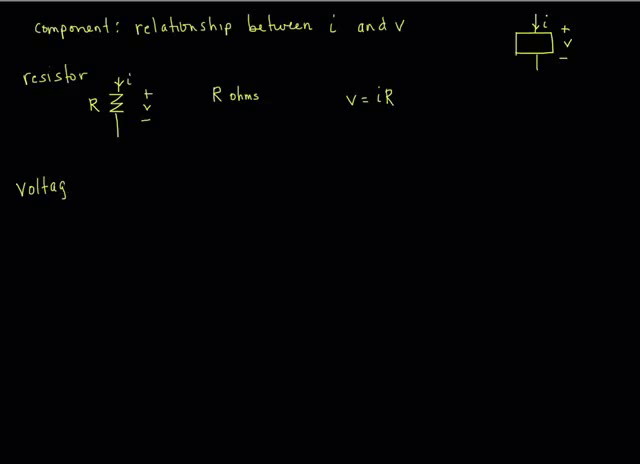 component: relationship between i and v
i
+
v
−
resistor
i
R
+
v
−
R ohms
v = iR
voltag